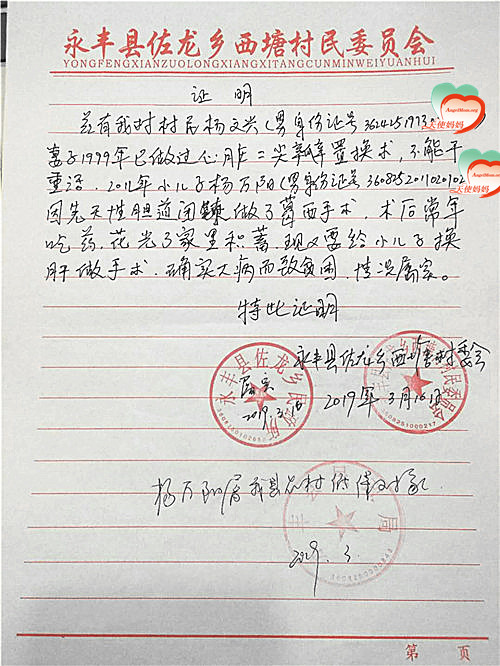 永丰县佐龙乡西塘村民委员会
YONGFENGXIANZUOLONGXIANGXITANGCUNMINWEIYUANHUI
证明
兹有我村村民杨文兴(男身份证号
妻子1999年已做过心脏二尖瓣置换术,不能干
重活,2011年小儿子杨万阳(男身份证号
因先天性胆道闭锁做了葛西手术,术后常年
吃药,花光了家里积蓄,现又要给小儿子换
肝做手术,确实大病而致贫困,情况属实。
特此证明
永丰县佐龙乡西塘村委会
2019年3月16日
属实
2019.3.16
永丰县佐龙乡民政所
杨万阳属我县农村低保对象
2019.3.
第 页
AngelMom.org
天使妈妈
AngelMom.org
天使妈妈